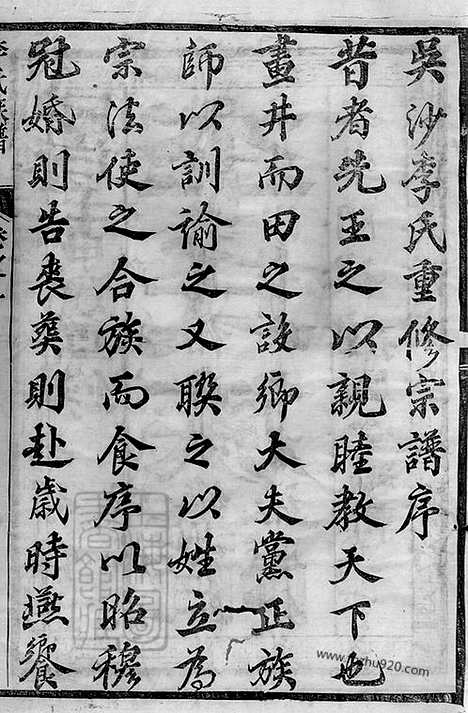 吳沙李氏重修宗譜序
昔者先王之以親睦教天下也
畫井而田之設鄉大夫黨正族
師以訓諭之又聯之以姓立為
宗法使之合族而食序以昭穆
冠婚則告喪葬則赴歲時燕饗
李氏宗譜